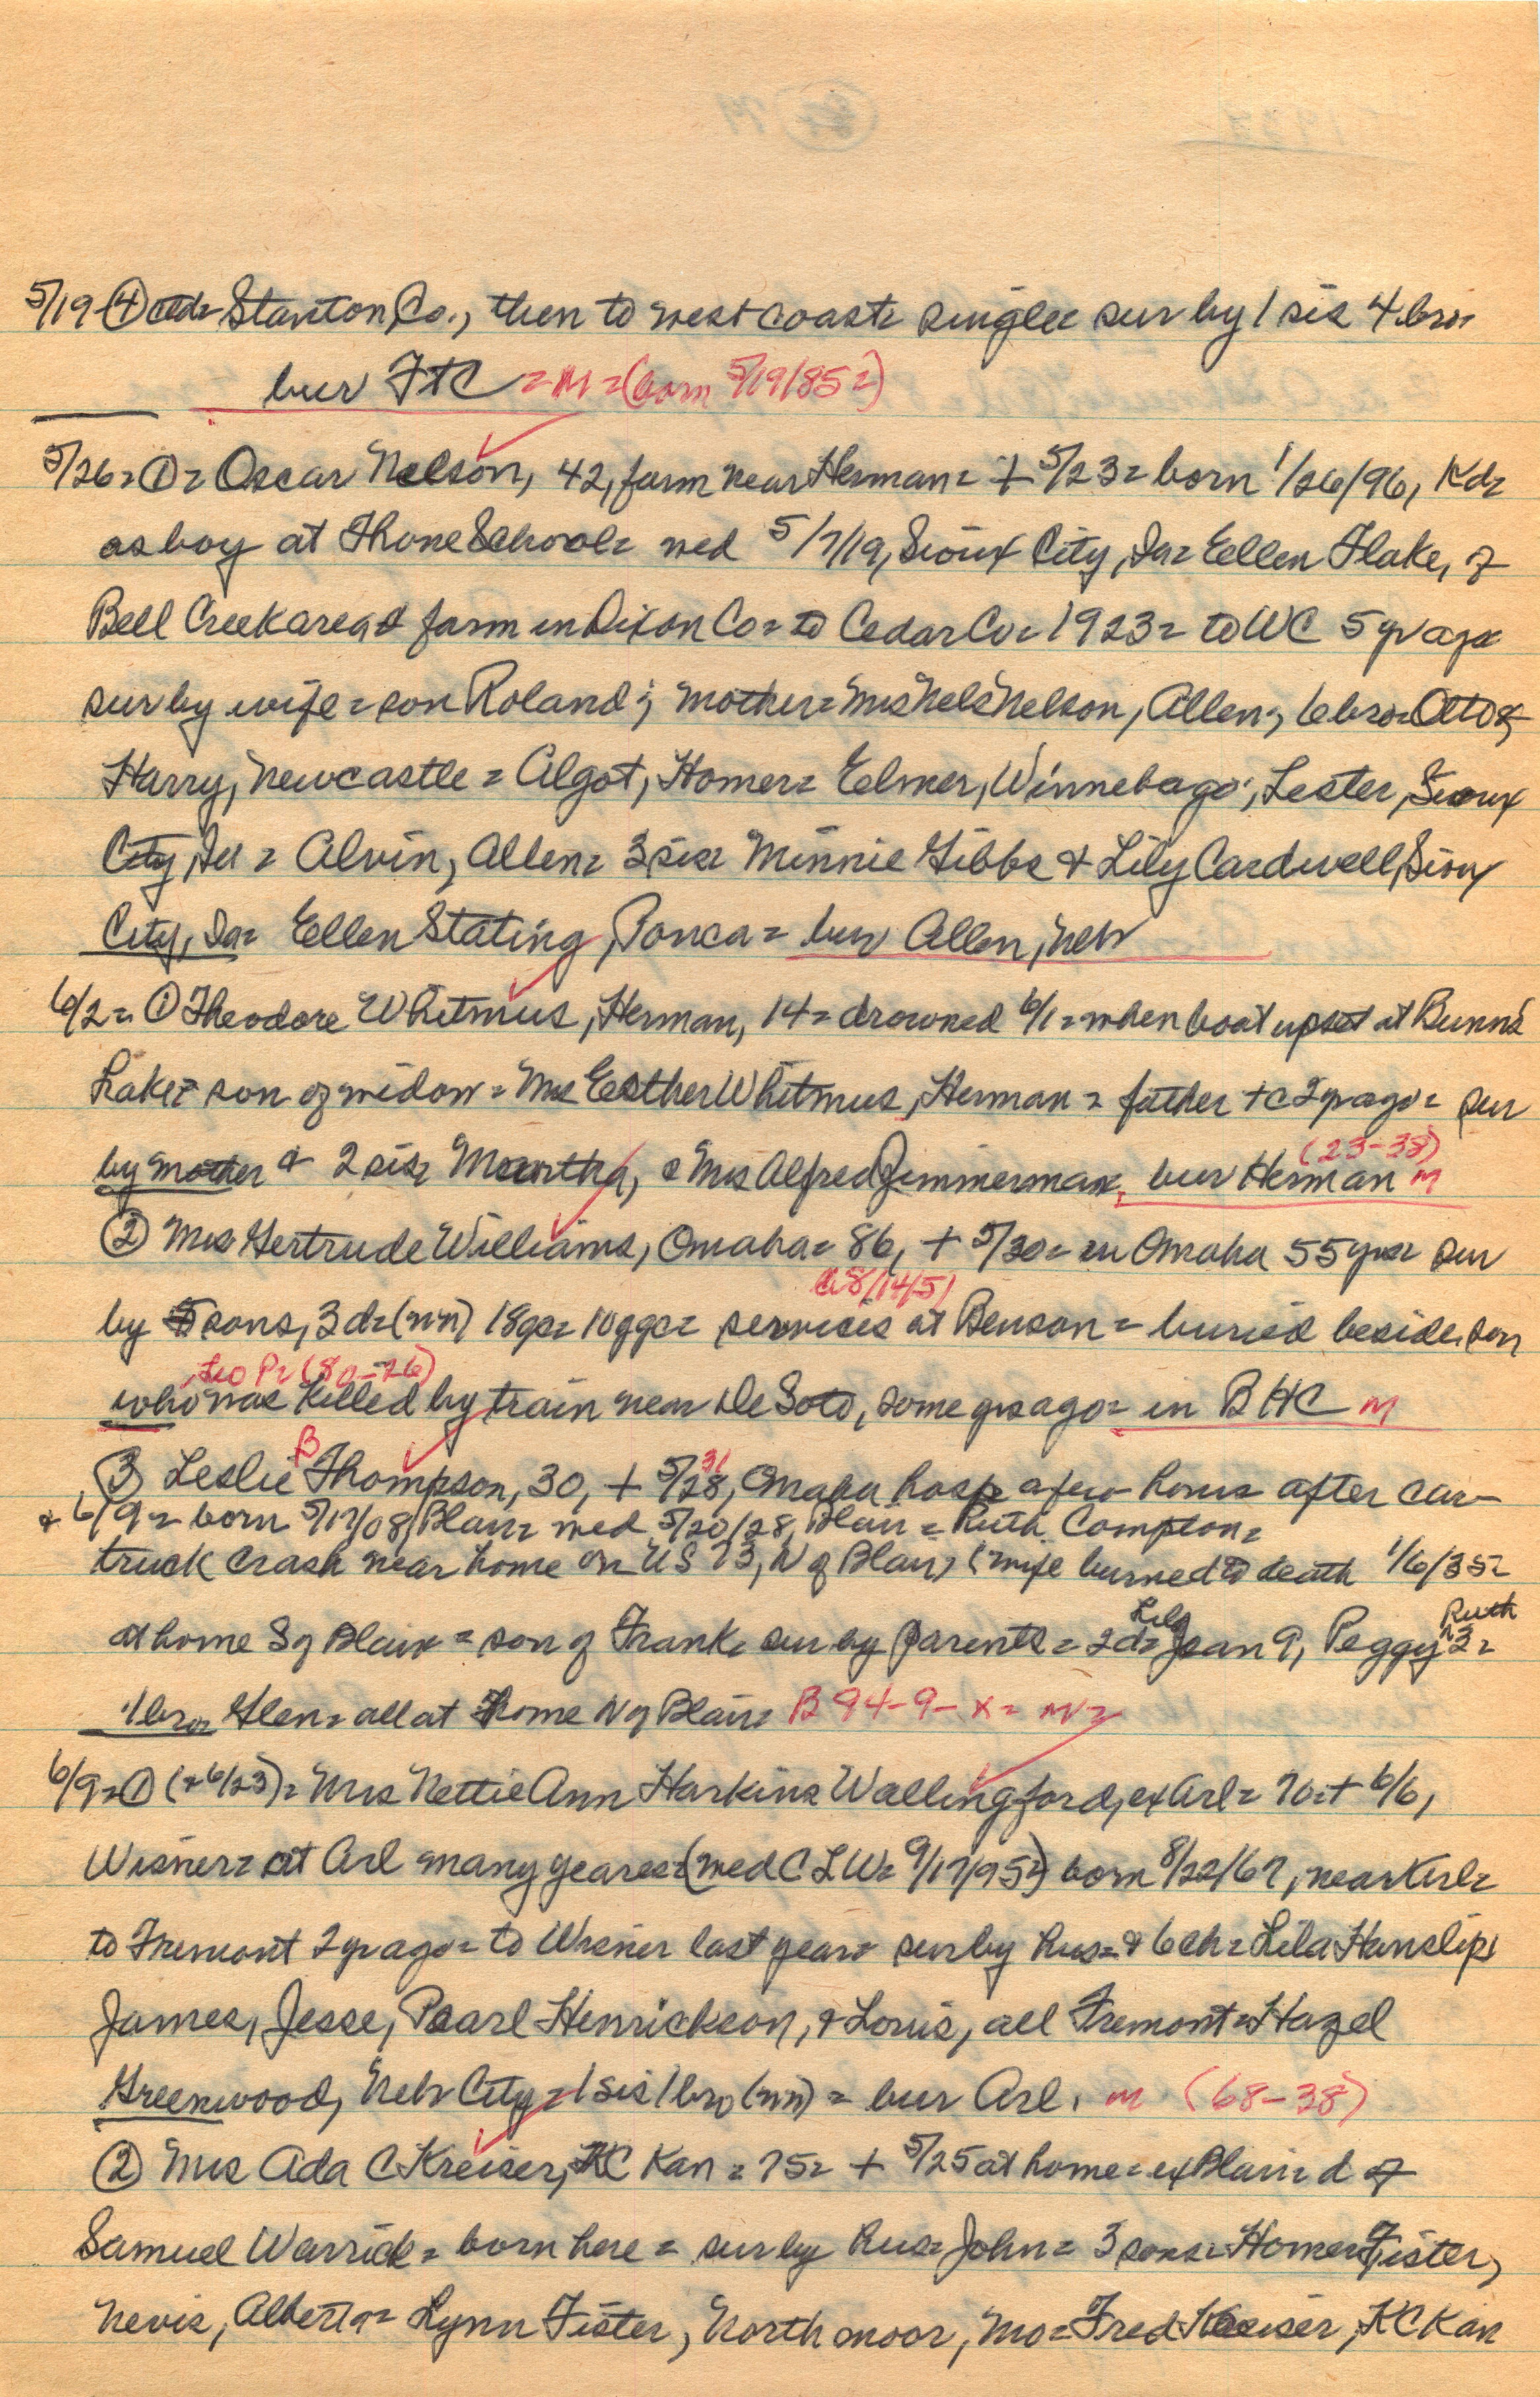 5/19 ④ ctd= Stanton Co., then to west coast= single= sur by 1 sis 4 bro=
bur FtC = M = (born 5/19/85=)
5/26= ①= Oscar Nelson, 42, farm near Herman= + 5/23= born 1/26/96, Kd=
as boy at Thone School= wed 5/7/19, Sioux City, Ia= Eellen Flake, of
Bell Creek area & farm in Dixon Co= to Cedar Co= 1923= to WC 5 yr ago=
sur by wife= son Roland; mother= Mrs Nels Nelson, Allen; 6 bro= Otto &
Harry, Newcastle = Algot, Homer= Eelmer, Winnebago; Lester, Sioux
City, Ia = Alvin, Allen= 3 sis= Minnie Gibbs & Lily Cardwell, Sioux
City, Ia= Eellen Stating, Ponca= bur Allen, Neb
6/2= ① Theodore Whitmus, Herman, 14= drowned 6/1= when boat upset at Bunn's
Lake= son of widow= Mrs Eesther Whitmus, Herman = father +c 2 yr ago= sur
(23-38)
by mother & 2 sis= Martha, & Mrs Alfred Zimmerman, bur Herman M
② Mrs Gertrude Williams, Omaha= 86, + 5/30= in Omaha 55 yrs= sur
8/14/51
by 5 sons, 3 d= (nn) 18 gc= 10 ggc= services at Benson= buried beside son
Leo P= (80-26)
who was killed by train near De Soto, some yrs ago= in BHC M
B 31
③ Leslie Thompson, 30, + 5/28, Omaha hosp a few hours after car-
& 6/9= born 5/17/08, Blair= wed 5/20/28, Blair= Ruth Compton=
truck crash near home on US 73, N of Blair, (wife burned to death 1/6/35=
Lila Ruth
at home S of Blair = son of Frank= sur by parents = 2 d= Jean 9, Peggy 3=
1 bro= Glen= all at home N of Blair= B 94-9-x= M=
6/9= ① (& 6/23)= Mrs Nettie Ann Harkins Wallingford, ex Arl= 70= + 6/6,
Wisner= at Arl many years= (wed C L W= 9/17/95=) born 8/22/67, near Arl=
to Fremont 2 yr ago= to Wisner last year= sur by hus= & 6 ch= Lila Hanslip,
James, Jesse, Pearl Henrickson, & Louis, all Fremont= Hazel
Greenwood, Neb City= 1 sis 1 bro (nn) = bur Arl. M (68-38)
② Mrs Ada C Kreiser, KC Kan = 75= + 5/25 at home= ex Blair= d of
Samuel Warrick= born here = sur by hus= John= 3 sons= Homer Fister,
Nevis, Alberta= Lynn Fister, Northmoor, Mo= Fred Kreiser, KC Kan